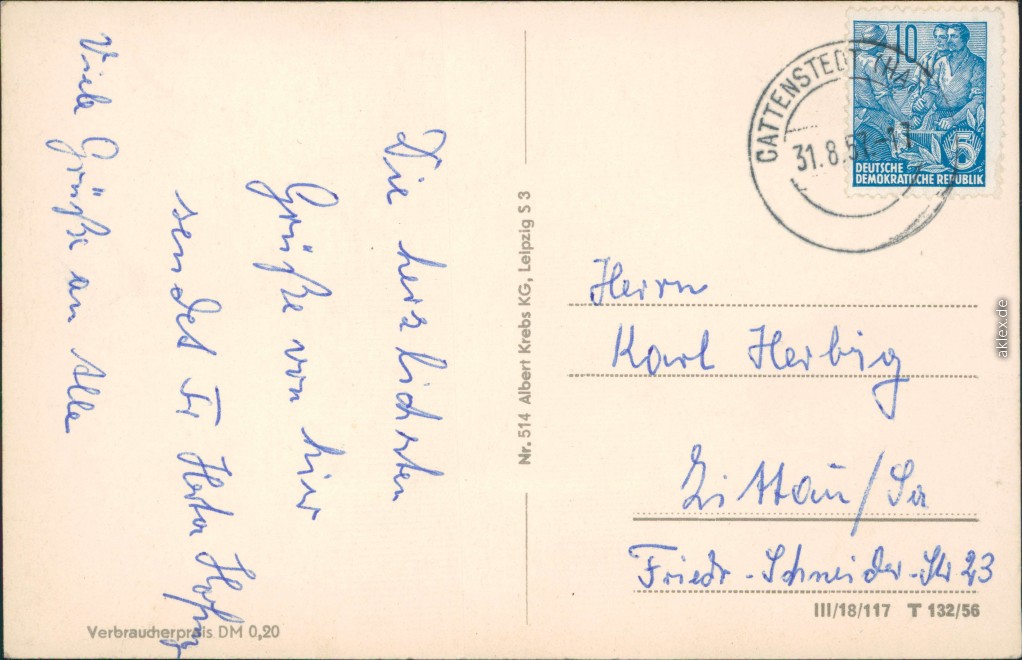 Die herzlichsten
Grüße von hier
sendet Fr Herta
Viele Grüße an Alle
Nr. 514 Albert Krebs KG, Leipzig S 3
Verbraucherpreis DM 0,20
CATTENSTEDT (HARZ)
31.8.57-17
10
5
DEUTSCHE
DEMOKRATISCHE REPUBLIK
Herrn
Karl Herbig
Zittau/Sa
Friedr.-Schneider-Str 23
III/18/117 T 132/56
aklex.de